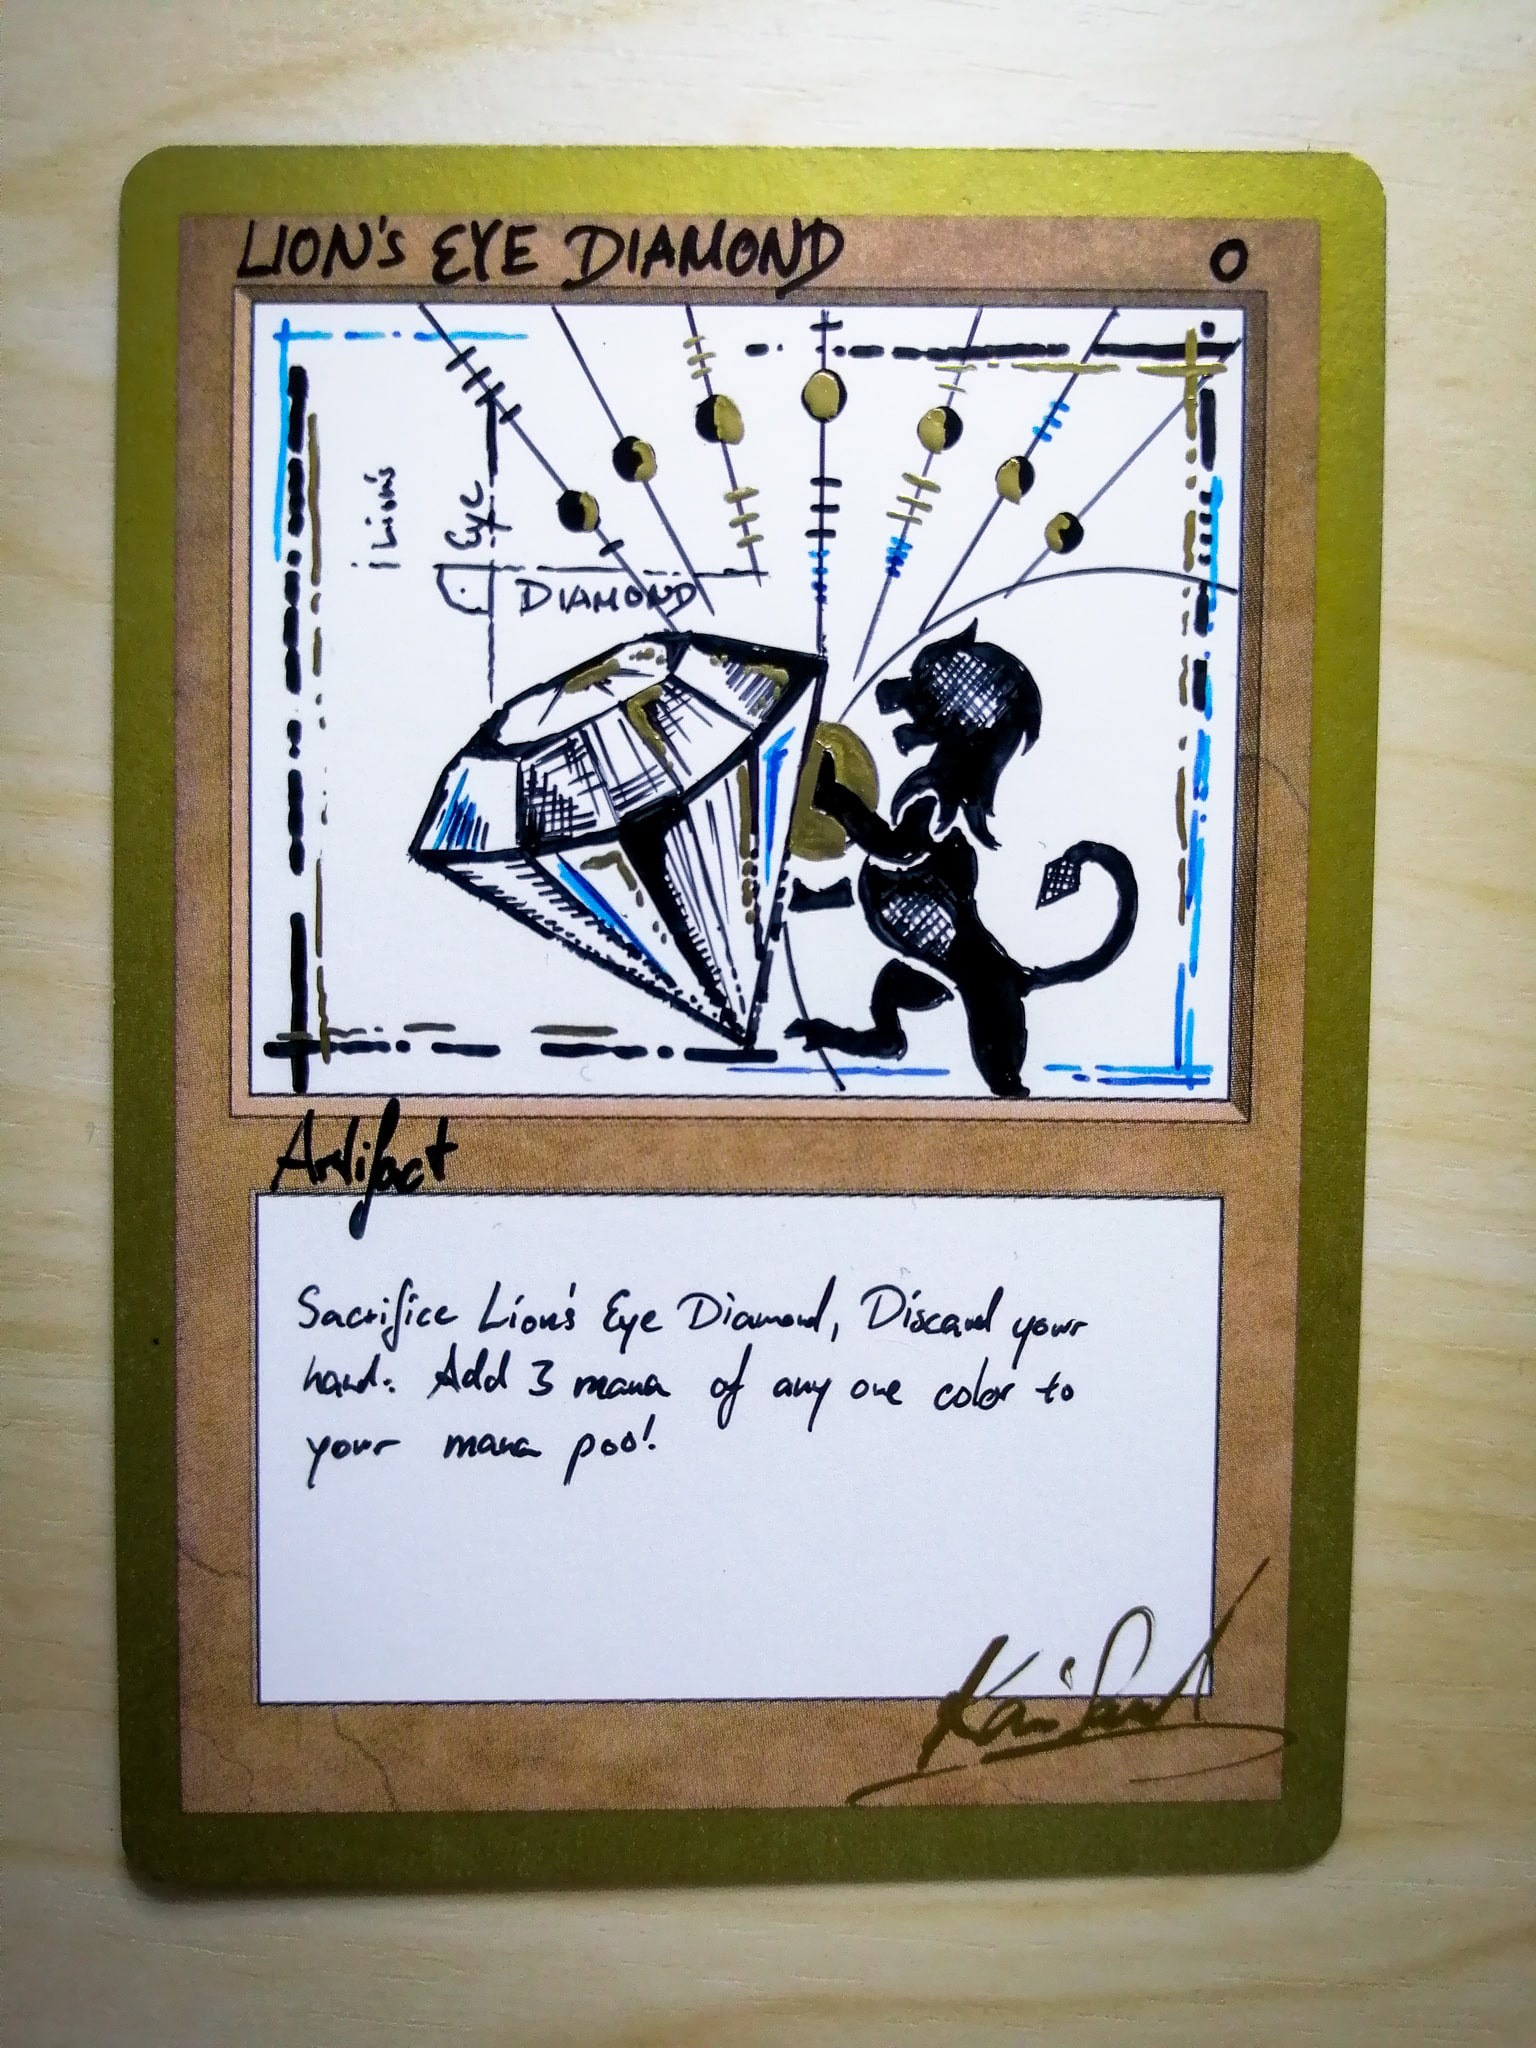 LION'S EYE DIAMOND 0
Lion's
Eye
DIAMOND
Artifact
Sacrifice Lion's Eye Diamond, Discard your
hand: Add 3 mana of any one color to
your mana pool